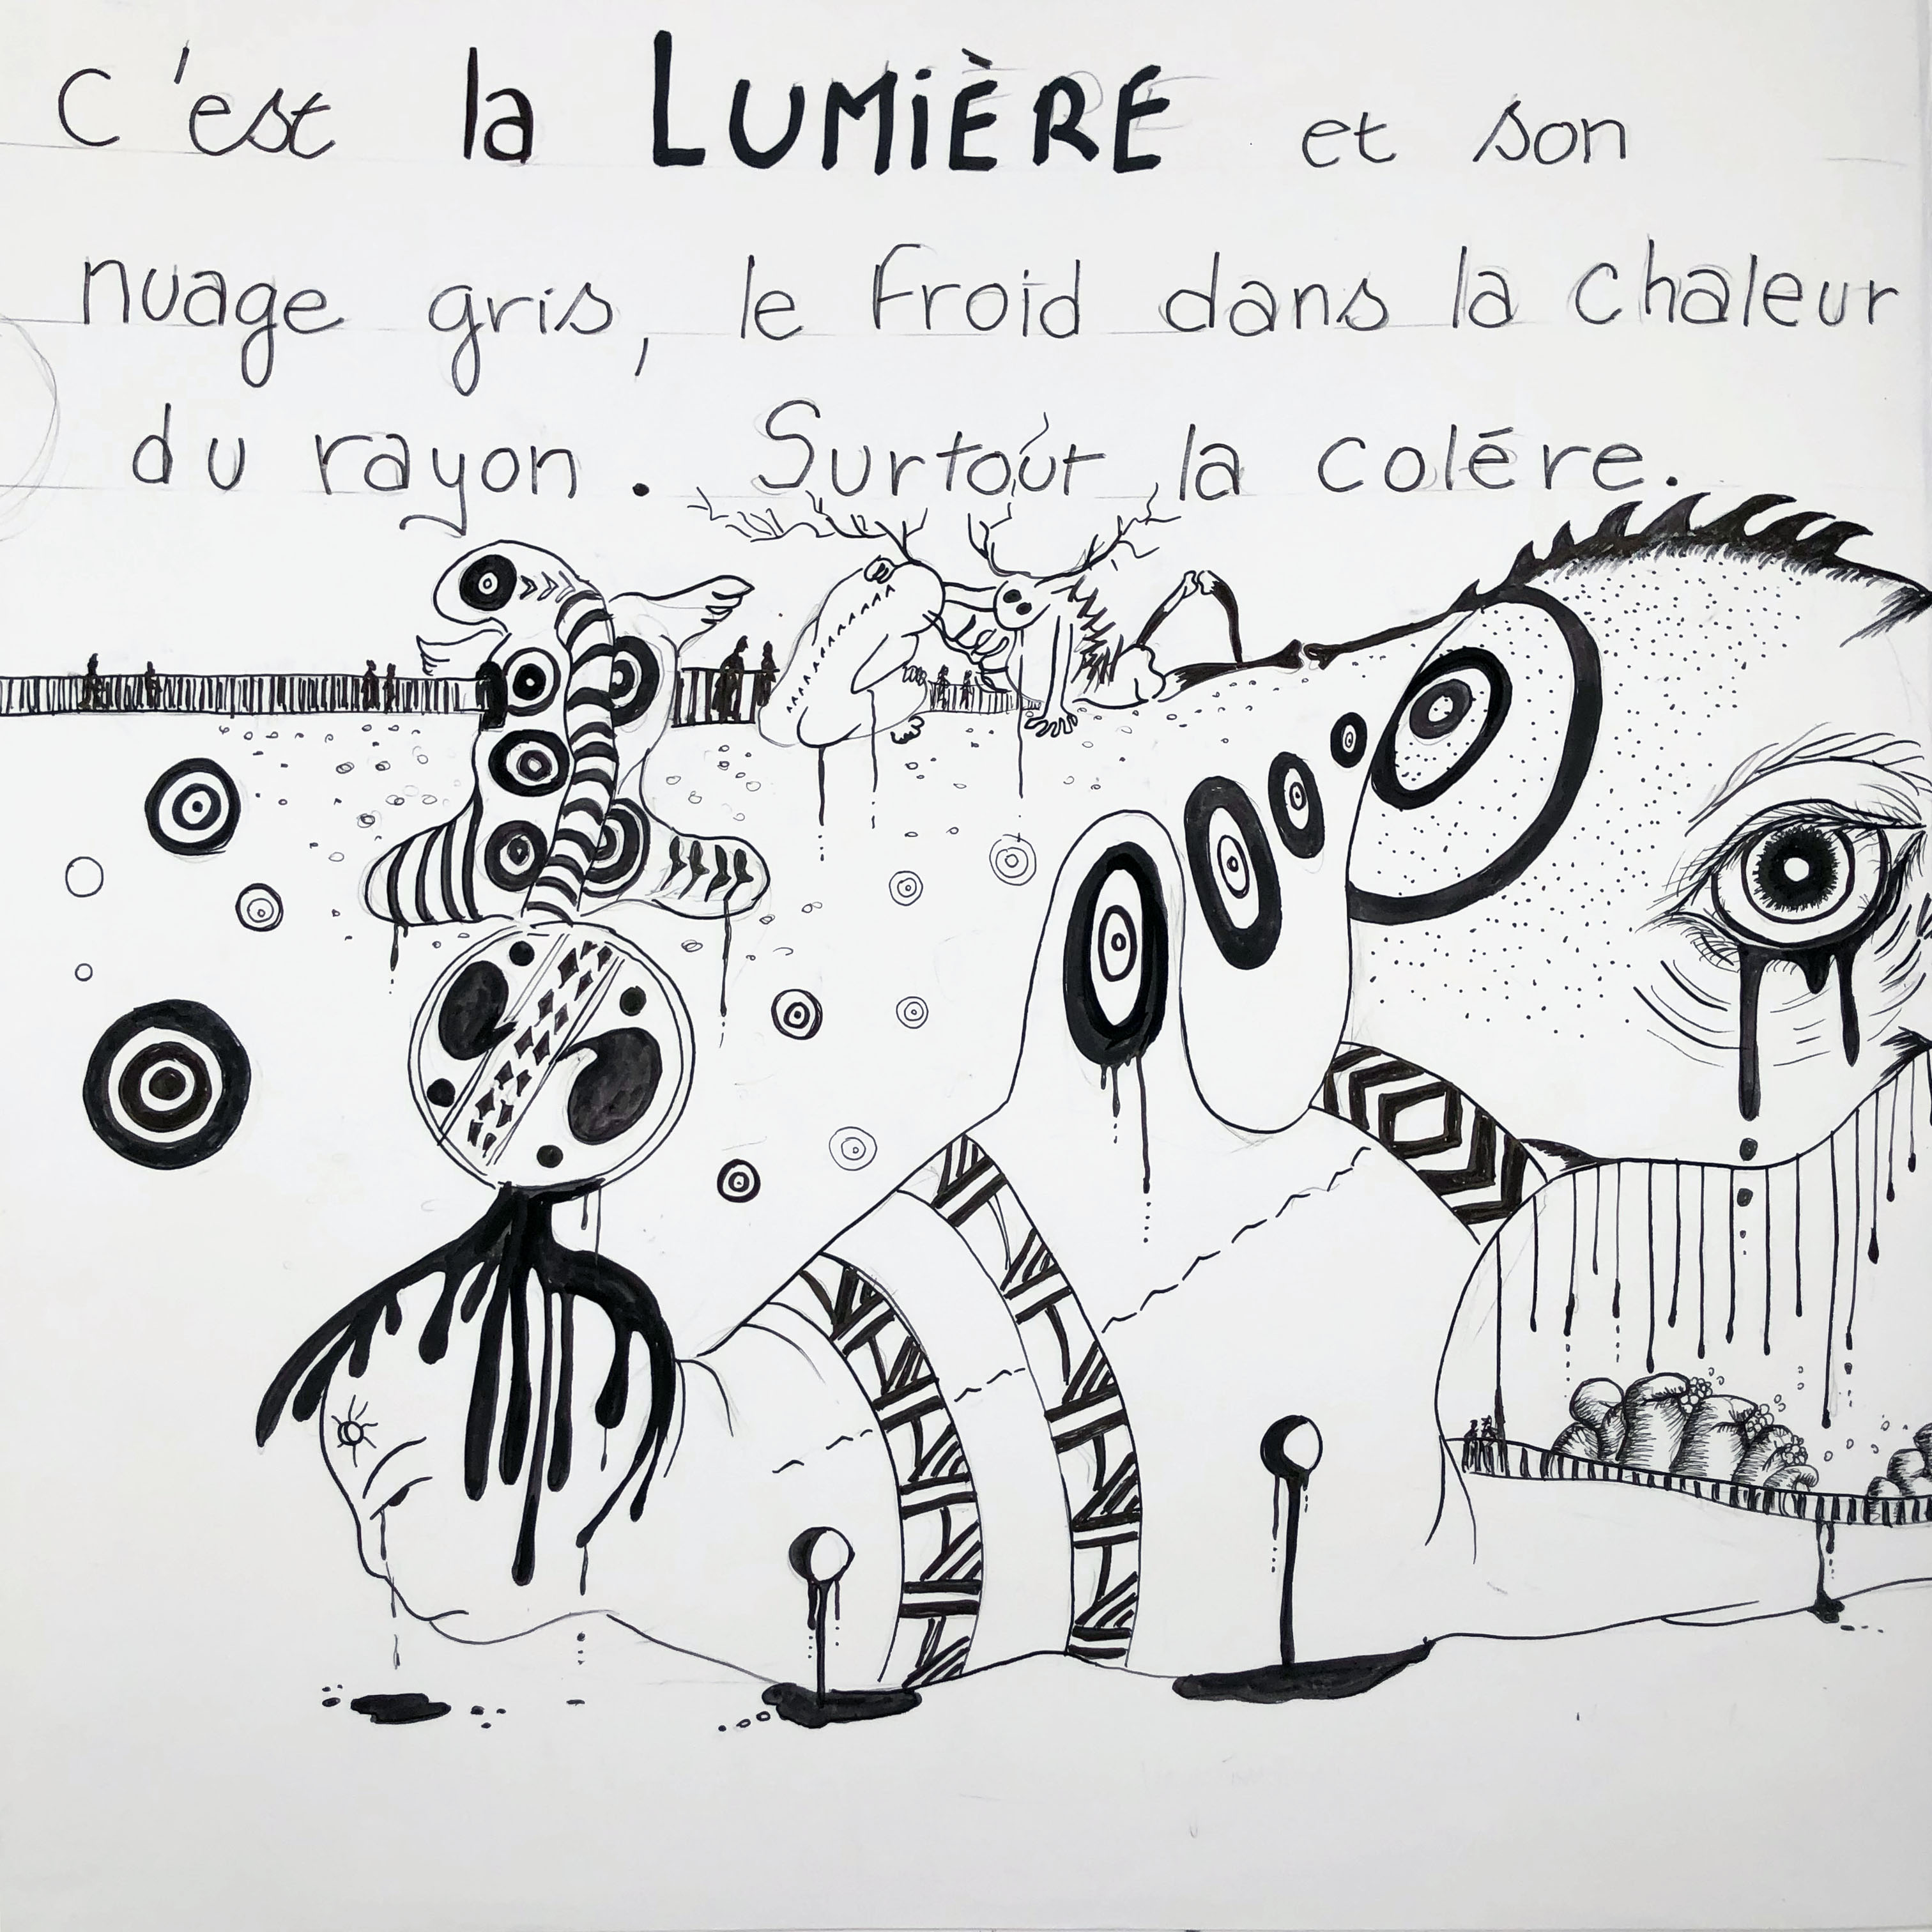 C'est la LUMiÈRE et son
nuage gris, le froid dans la chaleur
du rayon. Surtout la colére.